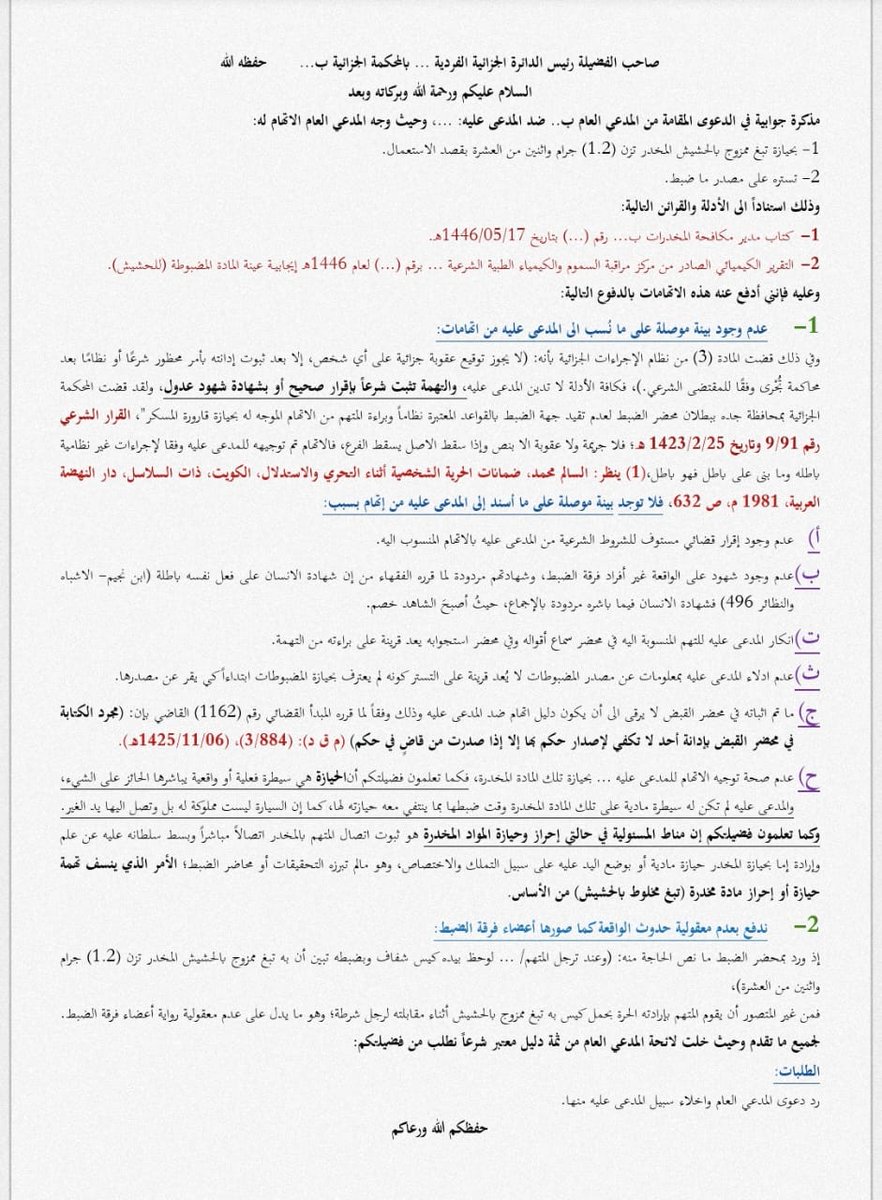 صاحب الفضيلة رئيس الدائرة الجزائية الفردية ... بالمحكمة الجزائية ب... حفظه الله
السلام عليكم ورحمة الله وبركاته وبعد
مذكرة جوابية في الدعوى المقامة من المدعي العام ب.. ضد المدعى عليه: ...، وحيث وجه المدعي العام الاتهام له:
1- بحيازة تبغ ممزوج بالحشيش المخدر تزن (1.2) جرام واثنين من العشرة بقصد الاستعمال.
2- تستره على مصدر ما ضبط.
وذلك استناداً الى الأدلة والقرائن التالية:
1- كتاب مدير مكافحة المخدرات ب... رقم (...) بتاريخ 1446/05/17هـ.
2- التقرير الكيميائي الصادر من مركز مراقبة السموم والكيمياء الطبية الشرعية ... برقم (...) لعام 1446هـ إيجابية عينة المادة المضبوطة (للحشيش).
وعليه فإنني أدفع عنه هذه الاتهامات بالدفوع التالية:
1- عدم وجود بينة موصلة على ما نُسب الى المدعى عليه من اتهامات:
وفي ذلك قضت المادة (3) من نظام الإجراءات الجزائية بأنه: (لا يجوز توقيع عقوبة جزائية على أي شخص، إلا بعد ثبوت إدانته بأمر محظور شرعًا أو نظامًا بعد
محاكمة تُجْرى وفقًا للمقتضى الشرعي.)، فكافة الأدلة لا تدين المدعى عليه، والتهمة تثبت شرعاً بإقرار صحيح أو بشهادة شهود عدول، ولقد قضت المحكمة
الجزائية بمحافظة جده ببطلان محضر الضبط لعدم تقيد جهة الضبط بالقواعد المعتبرة نظاماً وبراءة المتهم من الاتهام الموجه له بحيازة قارورة المسكر"، القرار الشرعي
رقم 9/91 وتاريخ 1423/2/25 هـ؛ فلا جريمة ولا عقوبة الا بنص وإذا سقط الاصل يسقط الفرع، فالاتهام تم توجيهه للمدعى عليه وفقا لإجراءات غير نظامية
باطله وما بنى على باطل فهو باطل،(1) ينظر: السالم محمد، ضمانات الحرية الشخصية أثناء التحري والاستدلال، الكويت، ذات السلاسل، دار النهضة
العربية، 1981 م، ص 632، فلا توجد بينة موصلة على ما أسند إلى المدعى عليه من إتهام بسبب:
أ) عدم وجود إقرار قضائي مستوف للشروط الشرعية من المدعى عليه بالاتهام المنسوب اليه.
ب) عدم وجود شهود على الواقعة غير أفراد فرقة الضبط، وشهادتهم مردودة لما قرره الفقهاء من إن شهادة الانسان على فعل نفسه باطلة (ابن نجيم- الاشباه
والنظائر 496) فشهادة الانسان فيما باشره مردودة بالإجماع، حيثُ أصبحَ الشاهد خصم.
ت) انكار المدعى عليه للتهم المنسوبة اليه في محضر سماع أقواله وفي محضر استجوابه يعد قرينة على براءته من التهمة.
ث) عدم ادلاء المدعى عليه بمعلومات عن مصدر المضبوطات لا يُعد قرينة على التستر كونه لم يعترف بحيازة المضبوطات ابتداءاً كي يقر عن مصدرها.
ج) ما تم اثباته في محضر القبض لا يرقى الى أن يكون دليل اتهام ضد المدعى عليه وذلك وفقاً لما قرره المبدأ القضائي رقم (1162) القاضي بإن: (مجرد الكتابة
في محضر القبض بإدانة أحد لا تكفي لإصدار حكم بها إلا إذا صدرت من قاضٍ في حكم) (م ق د): (3/884)، (1425/11/06هـ).
ح) عدم صحة توجيه الاتهام للمدعى عليه ... بحيازة تلك المادة المخدرة، فكما تعلمون فضيلتكم أنالحيازة هي سيطرة فعلية أو واقعية يباشرها الحائز على الشيء،
والمدعى عليه لم تكن له سيطرة مادية على تلك المادة المخدرة وقت ضبطها بما ينتفي معه حيازته لها، كما إن السيارة ليست مملوكة له بل وتصل اليها يد الغير.
وكما تعلمون فضيلتكم إن مناط المسئولية في حالتي إحراز وحيازة المواد المخدرة هو ثبوت اتصال المتهم بالمخدر اتصالاً مباشراً وبسط سلطانه عليه عن علم
وإرادة إما بحيازة المخدر حيازة مادية أو بوضع اليد عليه على سبيل التملك والاختصاص، وهو مالم تبرزه التحقيقات أو محاضر الضبط؛ الأمر الذي ينسف تهمة
حيازة أو إحراز مادة مخدرة (تبغ مخلوط بالحشيش) من الأساس.
2- ندفع بعدم معقولية حدوث الواقعة كما صورها أعضاء فرقة الضبط:
إذ ورد بمحضر الضبط ما نص الحاجة منه: (وعند ترجل المتهم/ ... لوحظ بيده كيس شفاف وبضبطه تبين أن به تبغ ممزوج بالحشيش المخدر تزن (1.2) جرام
واثنين من العشرة)،
فمن غير المتصور أن يقوم المتهم بإرادته الحرة بحمل كيس به تبغ ممزوج بالحشيش أثناء مقابلته لرجل شرطة؛ وهو ما يدل على عدم معقولية رواية أعضاء فرقة الضبط.
لجميع ما تقدم وحيث خلت لائحة المدعي العام من ثمة دليل معتبر شرعاً نطلب من فضيلتكم:
الطلبات:
رد دعوى المدعي العام واخلاء سبيل المدعى عليه منها.
حفظكم الله ورعاكم